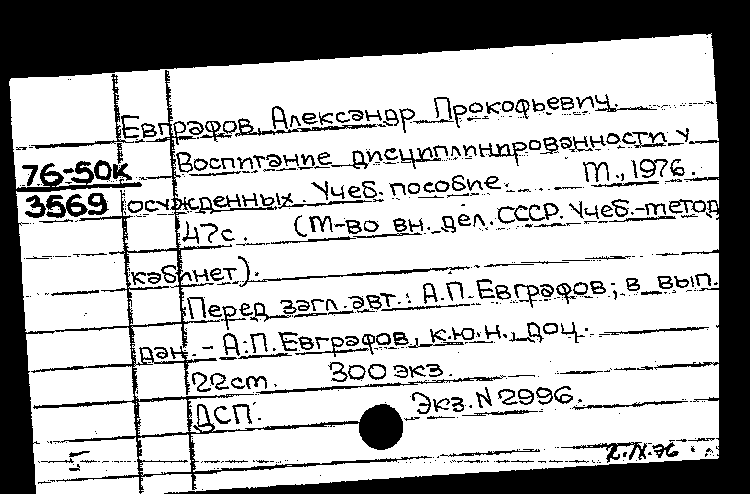 Евграфов, Александр Прокофьевич.
76-50к
3569
Воспитание дисциплинированности у
осужденных. Учеб. пособие. М., 1976.
47с. (М-во вн. дел. СССР. Учеб.-метод
кабинет).
Перед загл. авт.: А.П.Евграфов; в вып.
дан. - А.П.Евграфов, к.ю.н., доц.
22см. 300 экз.
ДСП. Экз. N 2996.
2.IX.76